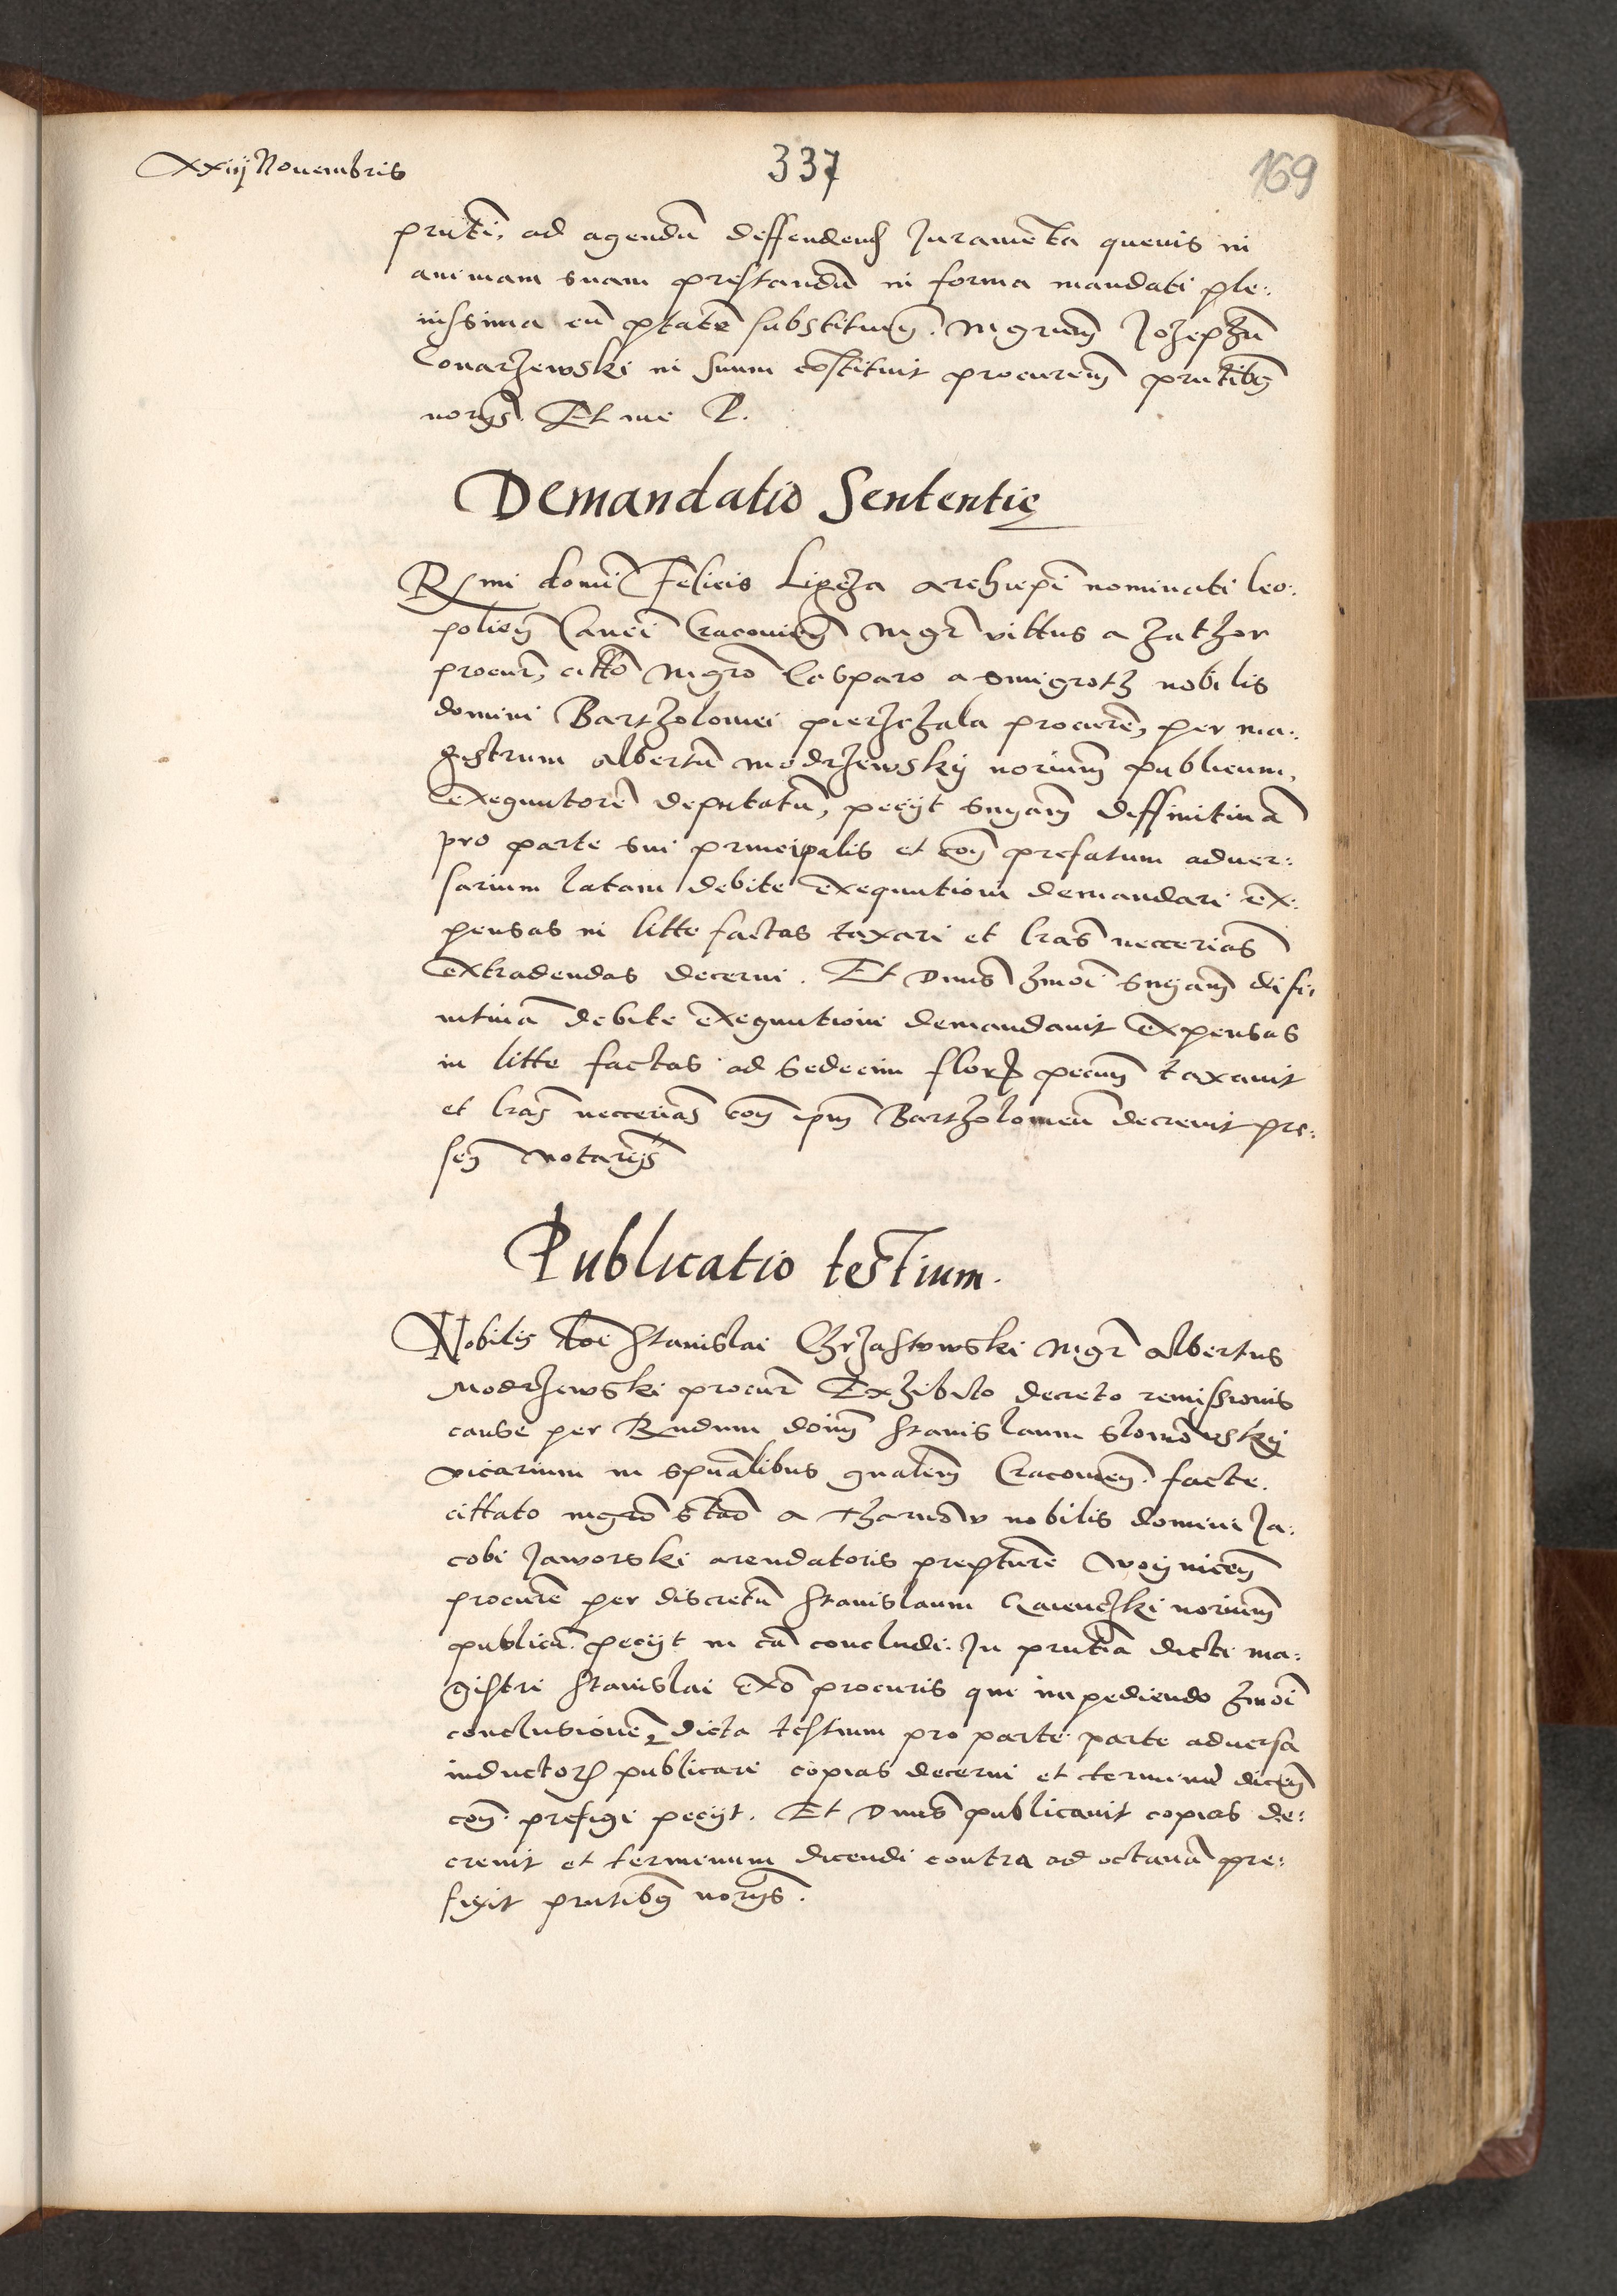 xxiij Nouembris
337
169
pnti, ad agendũ deffendend Juramẽta queuis in
animam suam prestandũ in forma mandati ple:
nissima cũ ptatẽ substituen. Mgrum Jozephũ
Conarzewski in suum cõstituit procurem pntibus
norijs. Et me P.
Demandatio Sententię
Rmi domi Felicis Ligęza archiepi nominati leo:
polien Canci Cracovien Mgr vittus a zathor
procur, citto Mgro Casparo a smigrotz nobilis
domini Bartholomei pierzchala procure, per ma:
gistrum Albertũ modrzewskij norium publicum,
exequutorẽ deputatũ, pecijt snÿam diffinitiuã
pro parte sui principalis et con prefatum aduer:
sarium latam debite exequutioni demandari ex:
pensas in litte factas taxari et lras neccerias
extradendas decerni. Et Dnus hmoi snÿam difi:
nitiuã debite exequutioni demandauit expensas
in litte factas ad sedecim flor pecun taxauit
et lras neccerias con ipm Bartholomeũ decreuit pre:
sen Notarijs
Publicatio testium.
Nobilis doi Stanislai Chrzastowski Mgr Albertus
Modrzewski procur Exhibito decreto remissionis
cause per Rndum doim Stanislaum slomowskij
vicarium in spualibus gnalem Cracouien. facte.
cittato mgro stao a Tharnow nobilis domini Ja:
cobi Jaworski arendatoris prepture woijnicen
procure per discretũ Stanislaum norium
publicũ pecijt in cã concludi: In pntia dicti ma:
gistri Stanislai exo procuris qui impediendo hmoi
conclusionem dicta testium pro parte parte aduersa
inductor publicari copias decerni et terminũ dicen
con prefigi pecijt. Et Dnus publicauit copias de:
creuit et terminum dicendi contra ad octauã pre:
fixit pntibus norijs.